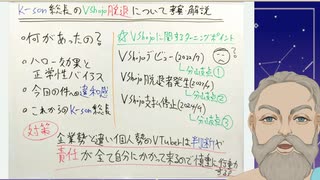 K-son総長のVShojo脱退について 解説
・何があったの?
・ハロー効果と
正常性バイアス
・今回の件への違和感
・これからのK-son総長
☆ VShojoに関するターニングポイント
VShojoデビュー(2022/7)
分岐点①
VShojo脱退者発生
分岐点②
VShojo支払停止
分岐点③
対策
企業勢と違い個人勢のVTuberは判断や
責任が全て自分にかかって来るので慎重に行動